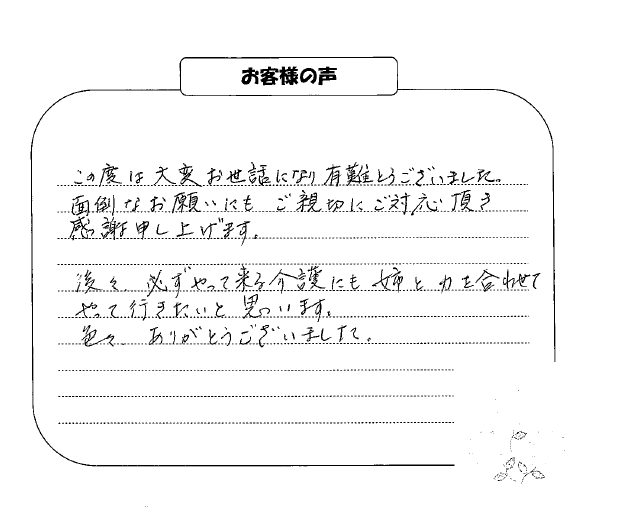 お客様の声
この度は大変お世話になり有難とうございました。
面倒なお願いにもご親切にご対応頂き
感謝申し上げます。
後々、必ずやって来る介護にも姉と力を合わせて
やって行きたいと思っいます。
色々、ありがとうございました。